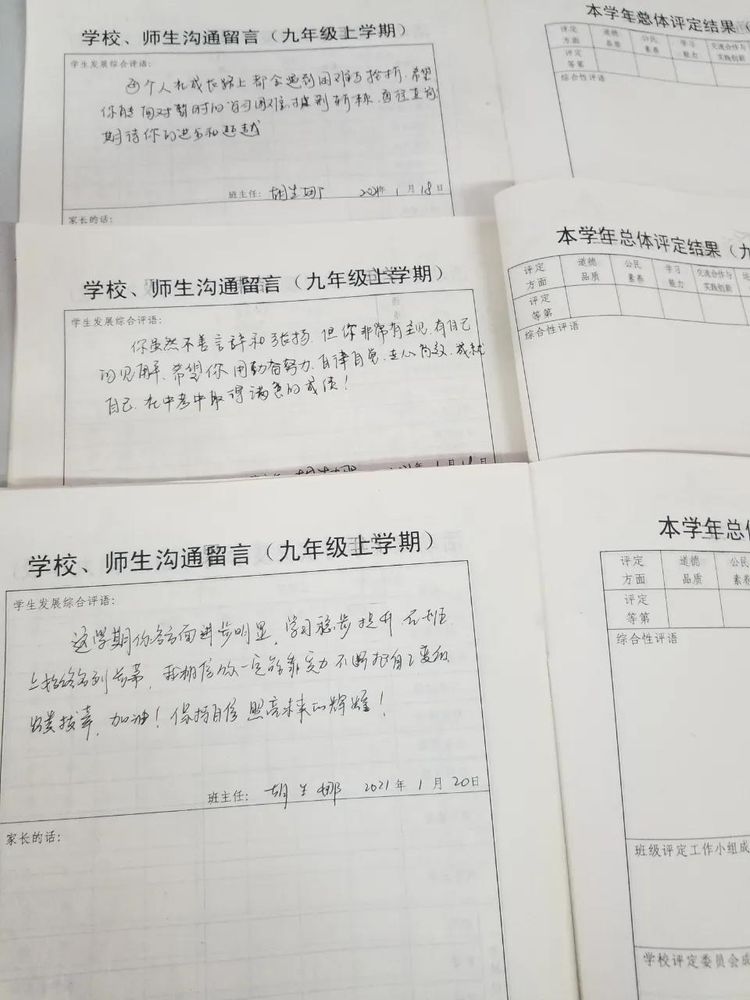 学校、师生沟通留言（九年级上学期）
学生发展综合评语：
每个人在成长路上都会遇到困难与挫折，希望
你能面对暂时的学习困难，
期待你的进步和超越
班主任： 2021年 1月 18日
家长的话：
本学年总体评定结果（
评定方面 道德品质 公民素养 学习能力 交流合作与实践创新
评定等第
综合性评语
学校、师生沟通留言（九年级上学期）
学生发展综合评语：
你虽然不善言辞和张扬，但你非常有主见，有自己
的见解，希望你用勤奋努力，自律自信，走心高效，成就
自己，在中考中取得满意的成绩！
本学年总体评定结果（九
评定方面 道德品质 公民素养 学习能力 交流合作与实践创新
评定等第
综合性评语
学校、师生沟通留言（九年级上学期）
学生发展综合评语：
这学期你各方面进步明显，学习稳步提升，在班
上始终名列前茅，我相信你一定能靠实力不断把自己变成
出类拔萃，加油！保持自信，照亮未来的辉煌！
班主任： 2021年 1月 20日
家长的话：
本学年总体
评定方面 道德品质 公民素养
评定等第
综合性评语
班级评定工作小组成
学校评定委员会成